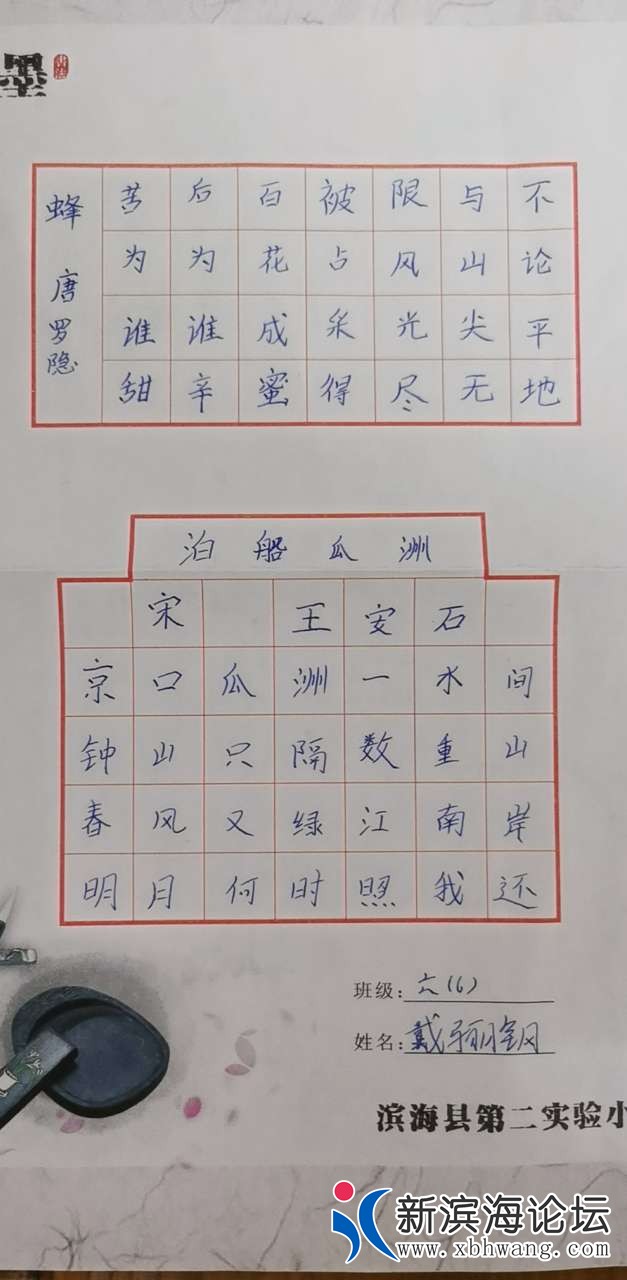 墨
蜂 唐 罗隐
不论平地
与山尖无
限风光尽
被占采得
百花成蜜
后为谁辛
苦为谁甜
泊船瓜洲
宋 王安石
京口瓜洲一水间
钟山只隔数重山
春风又绿江南岸
明月何时照我还
班级:六(6)
姓名:戴
滨海县第二实验小
新滨海论坛
www.xbhwang.com